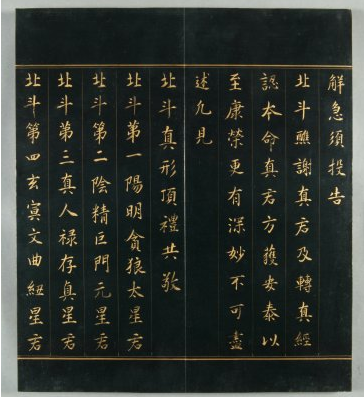 解急須投告
北斗醮謝真君及轉真經
認本命真君方獲安泰以
至康榮更有深妙不可盡
述凡見
北斗真形頂禮共敬
北斗第一陽明貪狼太星君
北斗第二陰精巨門元星君
北斗第三真人禄存真星君
北斗第四玄冥文曲紐星君